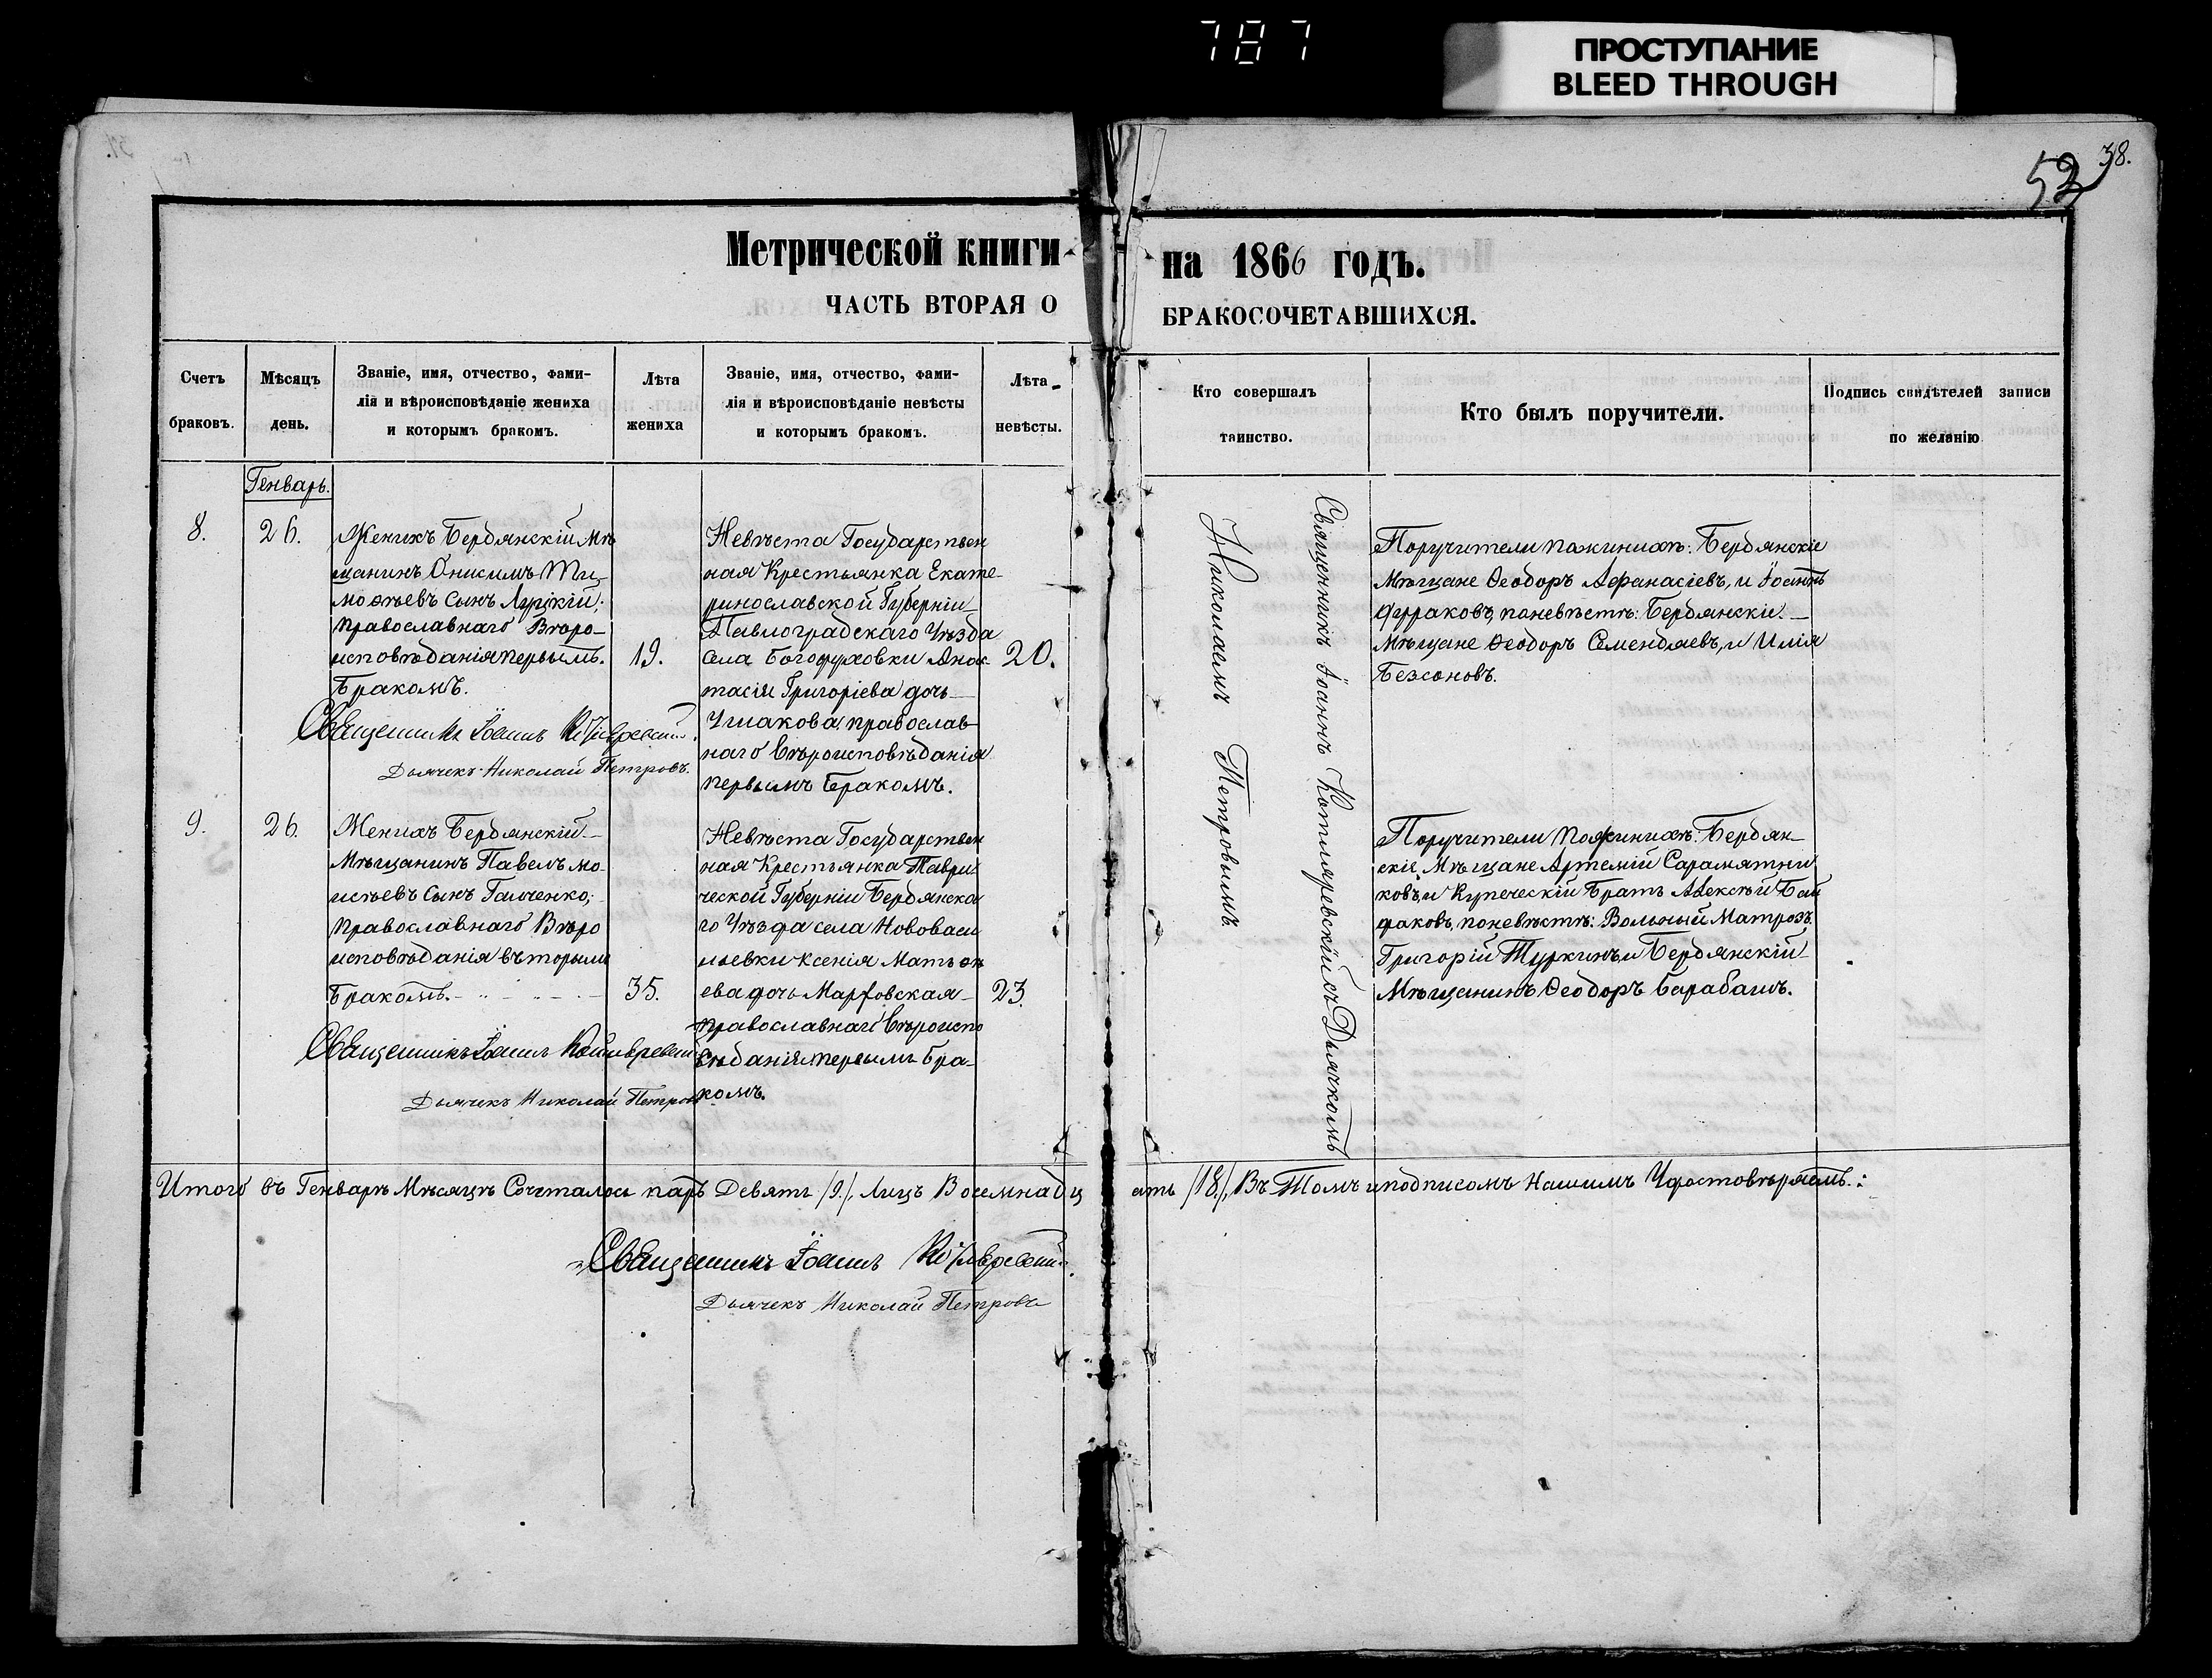 787
ПРОСТУПАНИЕ
BLEED THROUGH
38.
52
Метрической книги
на 1866 годъ.
ЧАСТЬ ВТОРАЯ О
БРАКОСОЧЕТАВШИХСЯ.
Счетъ
браковъ.
Мѣсяцъ
день.
Званіе, имя, отчество, фами-
лія и вѣроисповѣданіе жениха
и которымъ бракомъ.
Лѣта
жениха
Званіе, имя, отчество, фами-
лія и вѣроисповѣданіе невѣсты
и которымъ бракомъ.
Лѣта
невѣсты.
Кто совершалъ
таинство.
Кто былъ поручители.
Подпись свидѣтелей записи
по желанію
Генварь.
8.
26.
Женихъ Бердянскій Мѣ
щанинъ Онисимъ Ти-
моѳѣевъ Сынъ Луцкій;
православнаго Вѣро-
исповѣданія первымъ.
Бракомъ.
19.
Священникъ Іоаннъ Котляревскій.
Дьячекъ Николай Петровъ.
Невѣста Государствен
ная Крестьянка Екате-
ринославской Губерніи
Павлоградскаго Уѣзда
Села Богодуховки Анас-
тасія Григоріева дочь
православ
наго Вѣроисповѣданія
первымъ Бракомъ.
20.
Священникъ Іоаннъ Котляревскій съ Дьячкомъ
Николаемъ Петровымъ
Поручители пажинихѣ: Бердянскіе
Мѣщане Ѳеодоръ Афанасіевъ, и Іоаннъ
Ферраковъ, поневѣстѣ: Бердянскіе.
Мѣщане Ѳеодоръ Семендяевъ, и Илія
Безсоновъ.
9.
26.
Женихъ Бердянскій
Мѣщанинъ Павелъ Мо-
исѣевъ Сынъ Галченко;
православнаго Вѣро
исповѣданія вторымъ
Бракомъ.
35.
Священникъ Іоаннъ Котляревскій
Дьячекъ Николай Петровъ
Невѣста Государствен
ная Крестьянка Таври-
ческой Губерніи Бердянска
го Уѣзда села Нововаси
льевки Ксенія Матѳѣ
ева дочь Марговская
православнаго Вѣроиспо
вѣданія первымъ Бра-
комъ.
23.
Поручители Пожинихѣ: Бердян-
скіе Мѣщане Артемій Сарамятни
ковъ, и Купеческій Братъ Алексѣй Бай
даковъ, поневѣстѣ: Вольный Матрозъ
Григорій Туркинъ и Бердянскій
Мѣщанинъ Ѳеодоръ Барабашъ.
Итого въ Генварѣ Мѣсяцѣ Сочеталось паръ Девять /9./, Лицъ Восемнадц
ать /18./, Въ Томъ и подписомъ Нашимъ Удостовѣряемъ.:
Священникъ Іоаннъ Котляревскій.
Дьячекъ Николай Петровъ